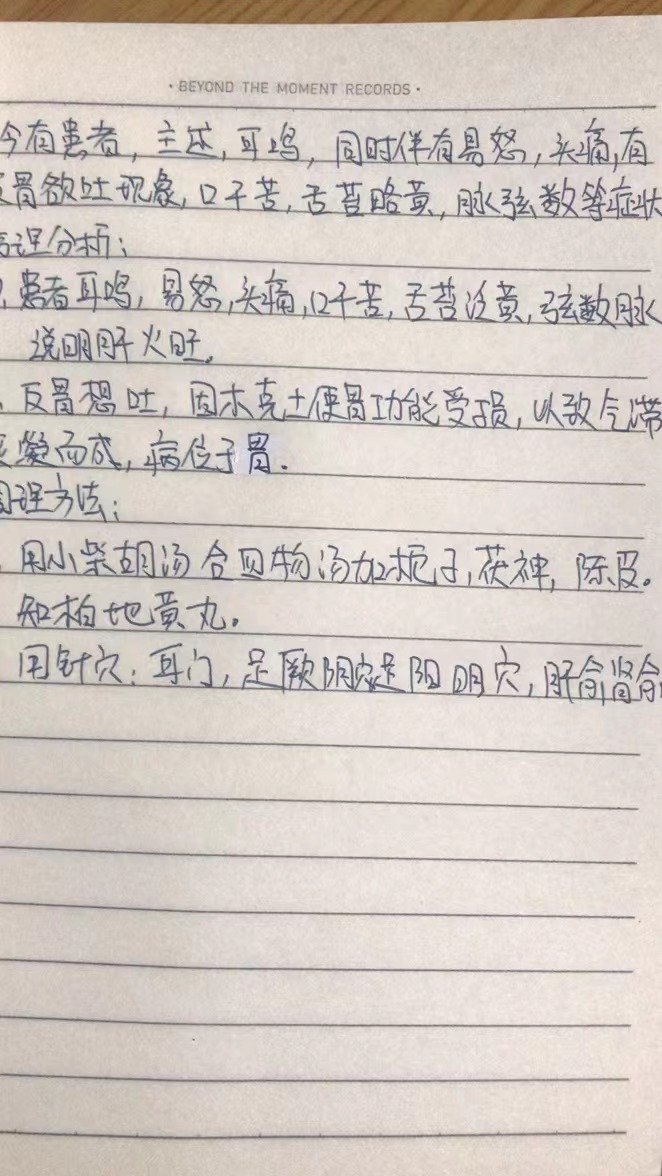 · BEYOND THE MOMENT RECORDS ·
今有患者，主述，耳鸣，同时伴有易怒，头痛，有
反胃欲吐现象，口干苦，舌苔略黄，脉弦数等症状
病理分析：
患者耳鸣，易怒，头痛，口干苦，舌苔淡黄，弦数脉
说明肝火旺。
、反胃想吐，因木克土使胃功能受损，以致气滞
凝而成，病位于胃。
调理方法：
用小柴胡汤合四物汤加栀子，茯神，陈皮。
知柏地黄丸。
用针穴：耳门，足厥阴穴足阳明穴，肝俞肾俞